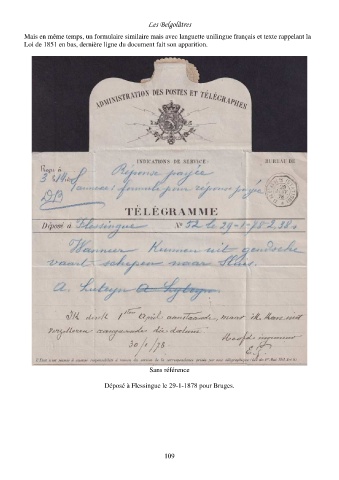 Les Belgolâtres
Mais en même temps, un formulaire similaire mais avec languette unilingue français et texte rappelant la
Loi de 1851 en bas, dernière ligne du document fait son apparition.
ADMINISTRATION DES POSTES ET TÉLÉGRAPHES
INDICATIONS DE SERVICE
BUREAU DE
Reçu à
Réponse payée
formule pour réponse payée
TÉLÉGRAMME
Déposé à Flessingue N° 52 le 29-1-78 2.38
Wanneer Kunnen uit
vaart schepen naar Sluis.
A. Luteyn
Ik denk 1 April aanstaande, maar ik kan niet
datum
30/1/78
Hoofd-ingenieur
Sans référence
Déposé à Flessingue le 29-1-1878 pour Bruges.
109